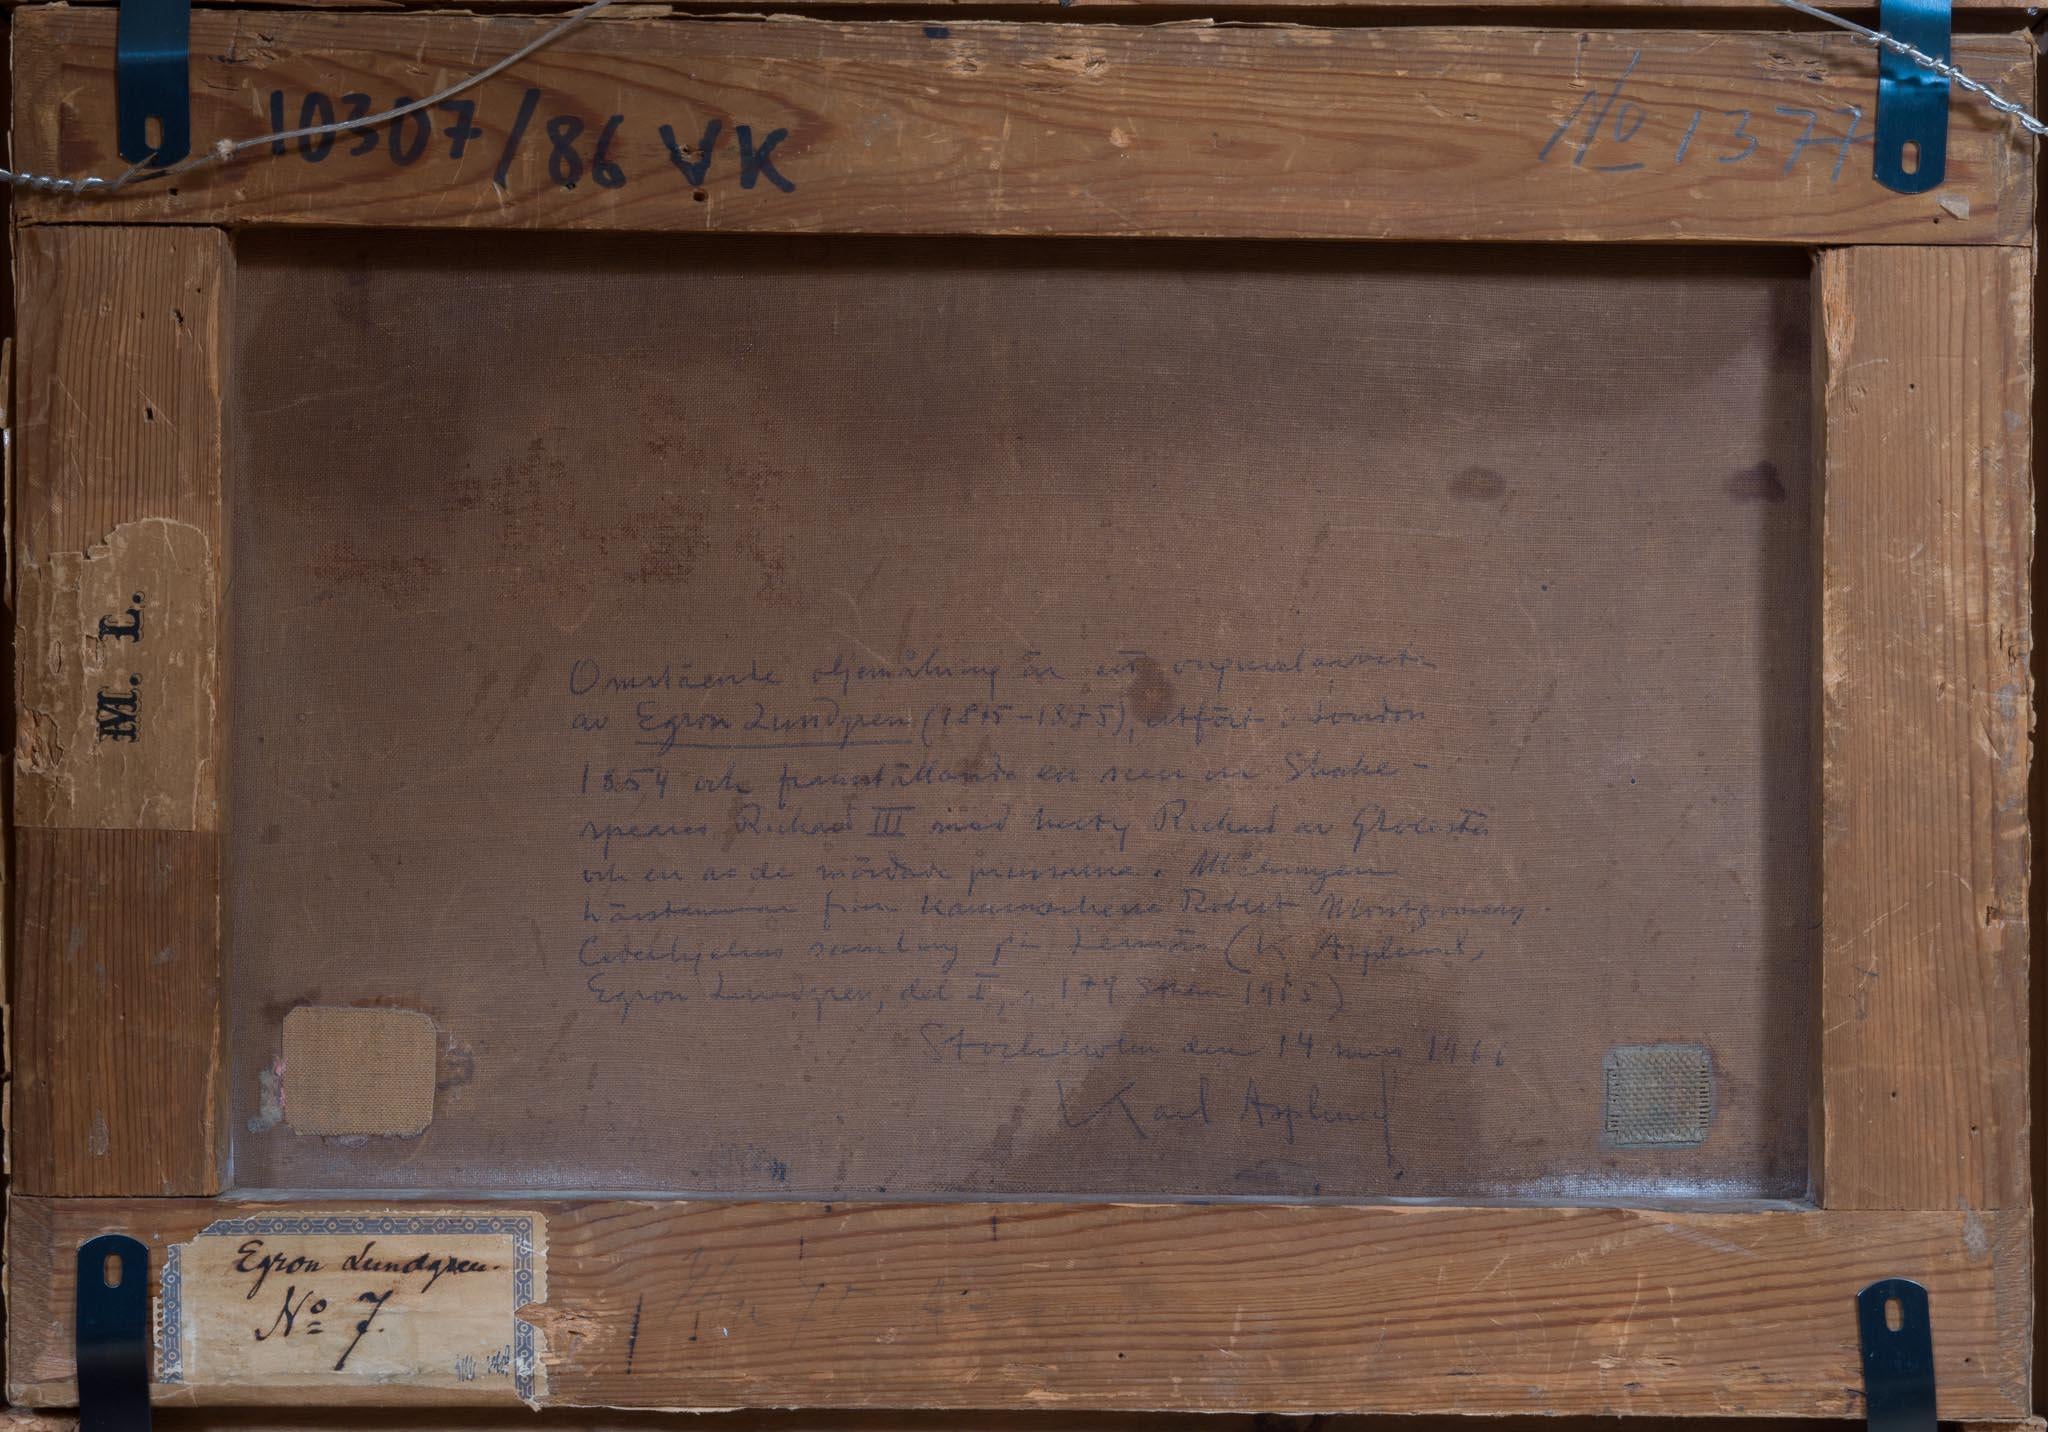 10307/86 VK
No 1377
M. L.
Omstående oljemålning är ett originalarbete
av Egron Lundgren (1815-1875), utfört i London
1854 och framställande en scen ur Shake-
speares Richard III med hertig Richard av Glocester
och en av de mördade prinsarna. Målningen
härstammar från Kammarherre Robert Montgomery-
Cederhjelms samling på (K Asplund,
Egron Lundgren, del I, s 179 1915)
Stockholm den 14 mars 1966
Karl Asplund
Egron Lundgren.
No 7.